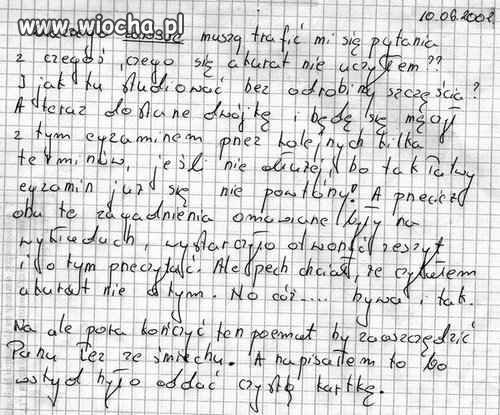 10.06.2002
www.wiocha.pl
zawsze muszą trafić mi się pytania
z czegoś, czego się akurat nie uczyłem??
I jak tu studiować bez odrobiny szczęścia?
A teraz dostanę dwójkę i będę się męczył
z tym egzaminem przez kolejnych kilka
terminów, jeśli nie dłużej, bo tak łatwy
egzamin już się nie powtórzy! A przecież
oba te zagadnienia omawiane były na
wykładach, wystarczyło otworzyć zeszyt
i o tym przeczytać. Ale pech chciał, że czytałem
akurat nie o tym. No cóż.... bywa i tak.
Na ale pora kończyć ten poemat by zaoszczędzić
Panu łez ze śmiechu. A napisałem to bo
wstyd było oddać czystą kartkę.